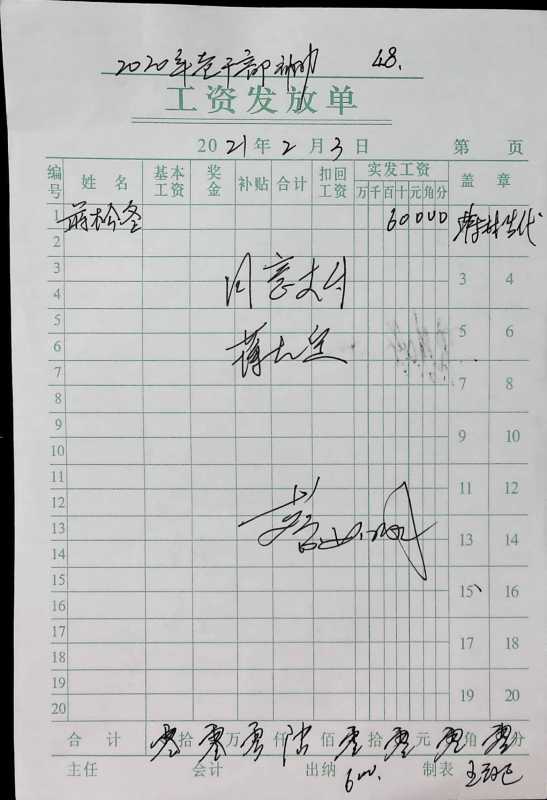 2020年老干部补助 48.
工资发放单
2021年2月3日 第 页
编号 姓名 基本工资 奖金 补贴 合计 扣回工资 实发工资 盖章
万千百十元角分
1 蒋松冬 60000
2
3 同意支付 3 4
4
5 5 6
6 蒋
7 7 8
8
9 9 10
10
11 11 12
12
13 13 14
14
15 15 16
16
17 17 18
18
19 19 20
20
合计 零拾零万零仟陆佰零拾零元零角零分
主任 会计 出纳 制表
600.